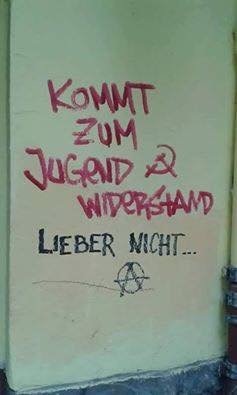 KOMMT
ZUM
JUGEND ☭
WIDERSTAND
LIEBER NICHT...
Ⓐ